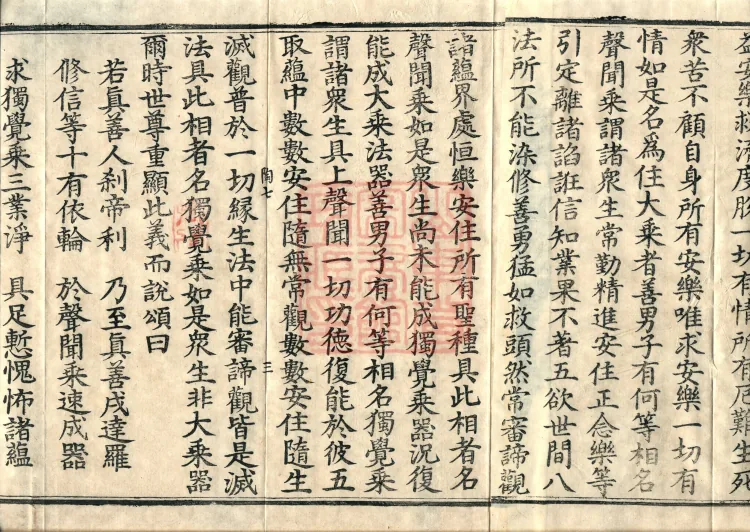 益安樂救濟度脫一切有情所有厄難生死
衆苦不顧自身所有安樂唯求安樂一切有
情如是名爲住大乘者善男子有何等相名
聲聞乘謂諸衆生常勤精進安住正念樂等
引定離諸諂誑信知業果不著五欲世間八
法所不能染修善勇猛如救頭然常審諦觀
諸蘊界處恒樂安住所有聖種具此相者名
聲聞乘如是衆生尚未能成獨覺乘器況復
能成大乘法器善男子有何等相名獨覺乘
謂諸衆生具上聲聞一切功德復能於彼五
取蘊中數數安住隨無常觀數數安住隨生
滅觀普於一切緣生法中能審諦觀皆是滅
陶七 三
法具此相者名獨覺乘如是衆生非大乘器
爾時世尊重顯此義而說頌曰
若眞善人刹帝利 乃至眞善戍達羅
修信等十有依輪 於聲聞乘速成器
求獨覺乘三業淨 具足慙愧怖諸蘊